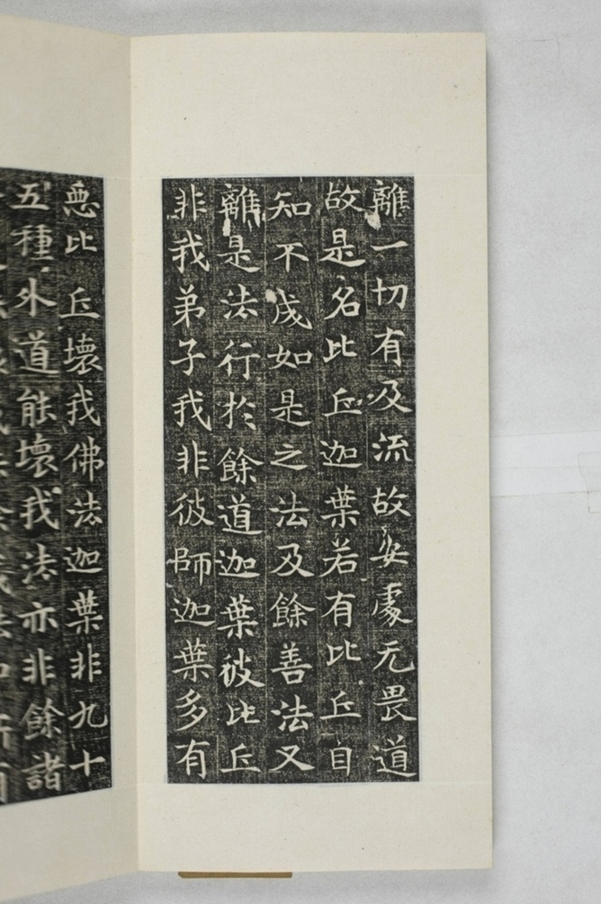 離一切有及流故安處无畏道
故是名比丘迦葉若有比丘自
知不成如是之法及餘善法又
離是法行於餘道迦葉彼比丘
非我弟子我非彼師迦葉多有
惡比丘壞我佛法迦葉非九十
五種外道能壞我法亦非餘諸